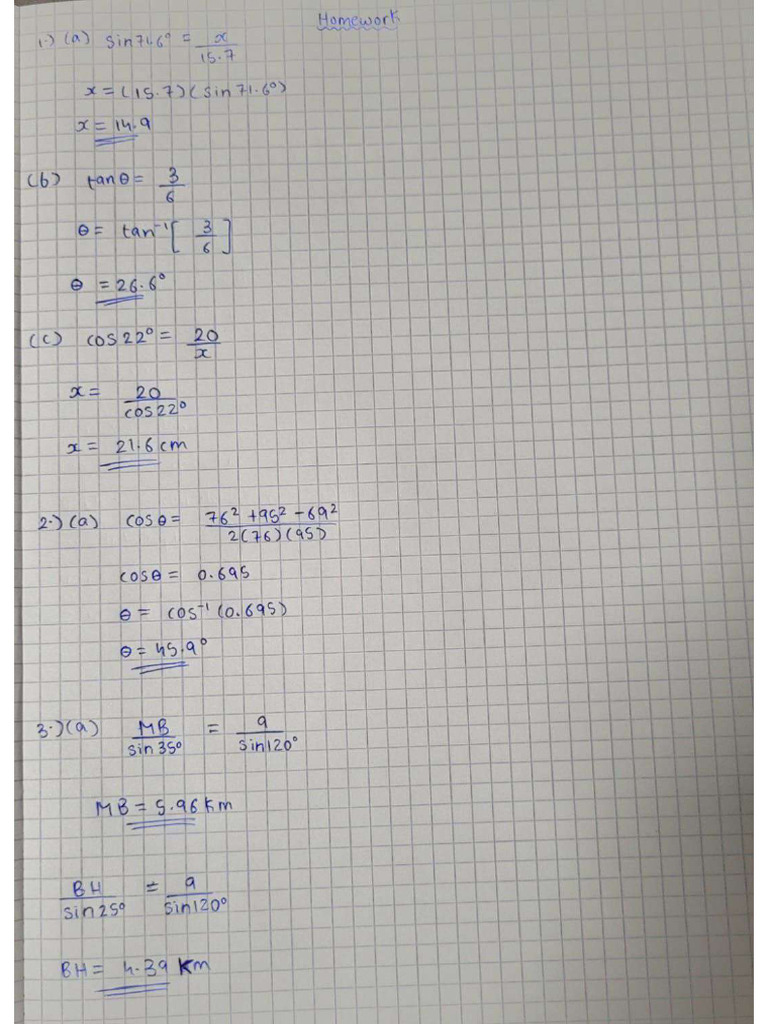 Homework
1.) (a) sin71.6° = x/15.7
x = (15.7)(sin71.6°)
x = 14.9
(b) tanθ = 3/6
θ = tan⁻¹[3/6]
θ = 26.6°
(c) cos22° = 20/x
x = 20/cos22°
x = 21.6cm
2.) (a) cosθ = 76² + 95² - 69²/2(76)(95)
cosθ = 0.695
θ = cos⁻¹(0.695)
θ = 45.9°
3.) (a) MB/sin35° = 9/sin120°
MB = 5.96Km
BH/sin25° = 9/sin120°
BH = 4.39 Km